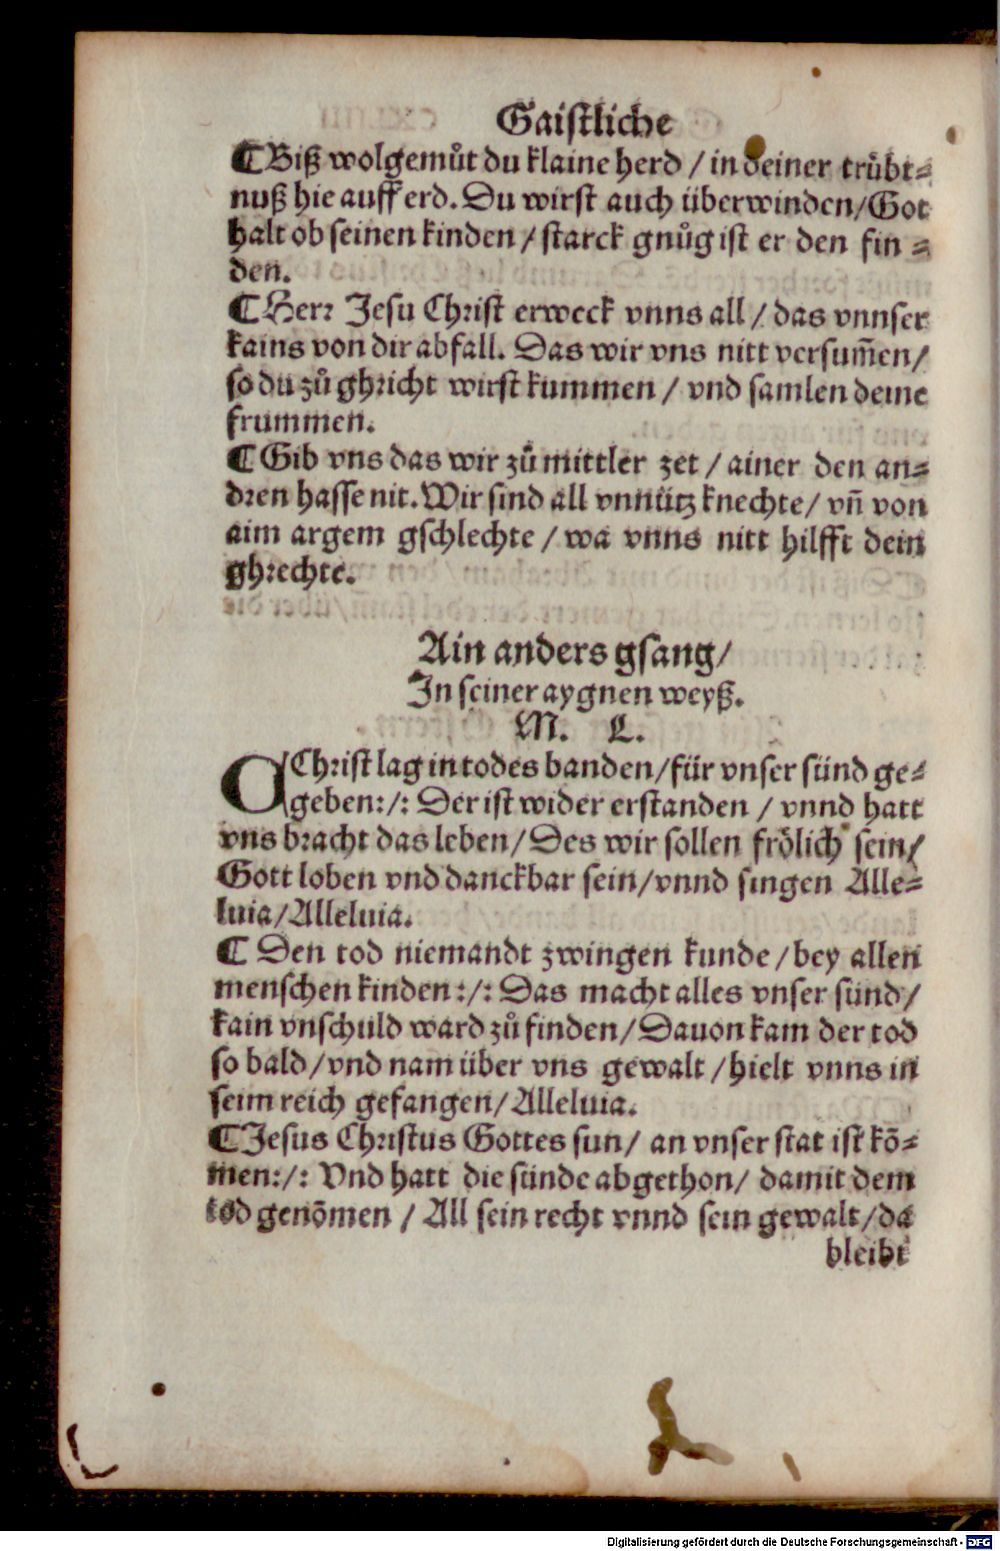 Gaistliche
¶ Biß wolgemuͦt du klaine herd / in deiner truͤbt⸗
nuß hie auff erd. Du wirst auch überwinden/Got
halt ob seinen kinden / starck gnuͦg ist er den fin ⸗
den.
¶ Herr Jesu Christ erweck vnns all / das vnnser
kains von dir abfall. Das wir vns nitt versum̄en/
so du zuͦ ghricht wirst kummen / vnd samlen deine
frummen.
¶ Gib vns das wir zuͦ mittler zet / ainer den an⸗
dren hasse nit. Wir sind all vnnütz knechte/ vn̄ von
aim argem gschlechte / wa vnns nitt hilfft dein
ghrechte.
Ain anders gsang/
In seiner aygnen weyß.
M. L.
O Christ lag in todes banden/für vnser sünd ge⸗
geben:/: Der ist wider erstanden / vnnd hatt
vns bracht das leben/ Des wir sollen froͤlich sein/
Gott loben vnd danckbar sein/vnnd singen Alle⸗
luia/Alleluia.
¶ Den tod niemandt zwingen kunde / bey allen
menschen kinden:/: Das macht alles vnser sünd/
kain vnschuld ward zuͦ finden/ Dauon kam der tod
so bald/vnd nam über vns gewalt / hielt vnns in
seim reich gefangen/ Alleluia.
¶ Jesus Christus Gottes sun/ an vnser stat ist kō⸗
men:/: Vnd hatt die sünde abgethon/ damit dem
tod genōmen / All sein recht vnnd sein gewalt/da
bleibt
Digitalisierung gefördert durch die Deutsche Forschungsgemeinschaft - DFG